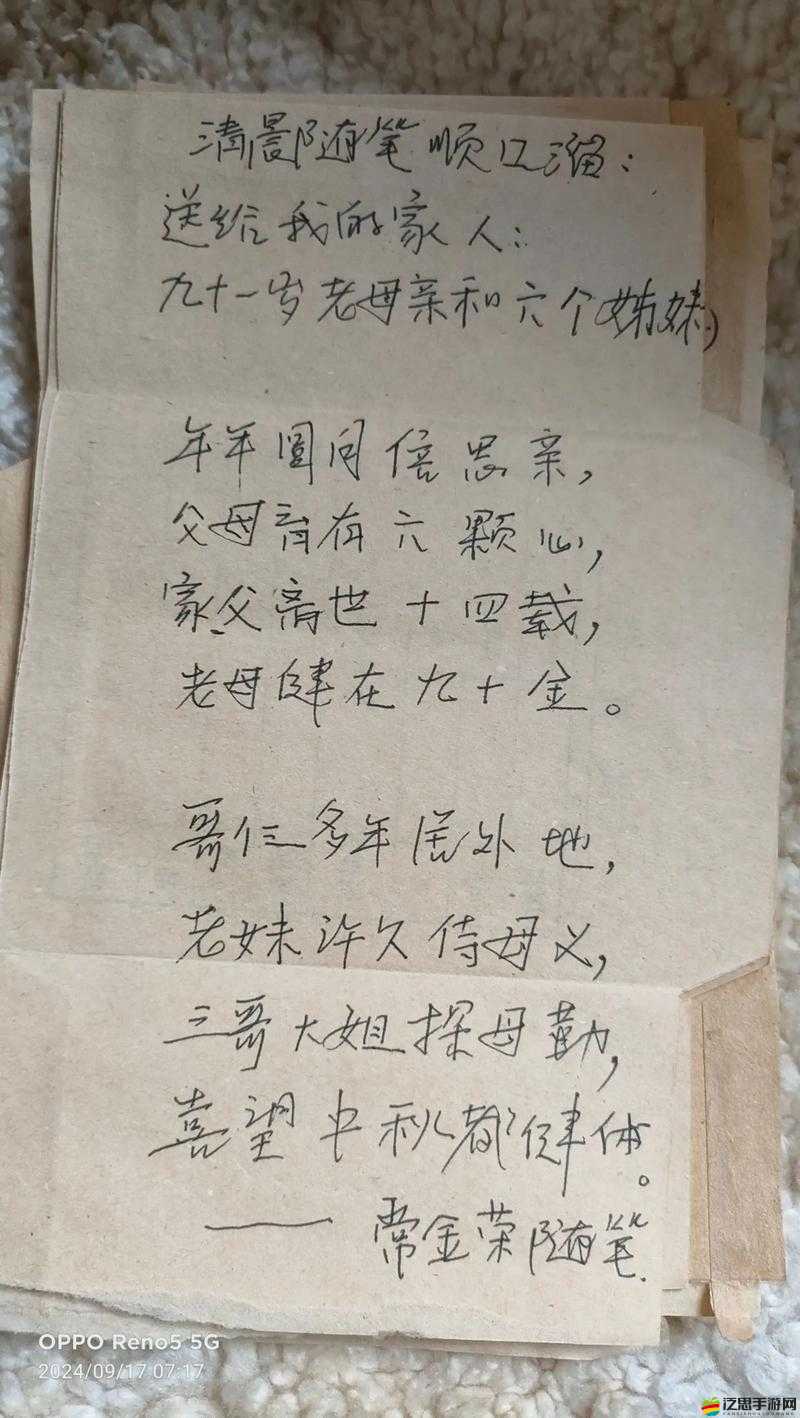 清晨随笔顺口溜:
送给我的家人:
九十一岁老母亲和六个姊妹)
年年圆月倍思亲,
父母育有六颗心,
家父离世十四载,
老母健在九十金。
哥仨多年居外地,
老妹许久侍母义,
三哥大姐探母勤,
喜望中秋都健体。
——常金荣随笔.
OPPO Reno5 5G
2024/09/17 07:17
泛思手游网